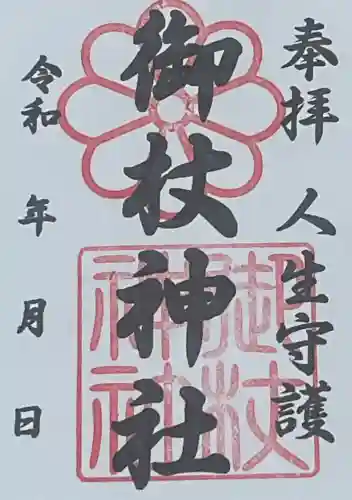 奉拝 人生守護
御杖神社
令和 年 月 日
御杖
神社